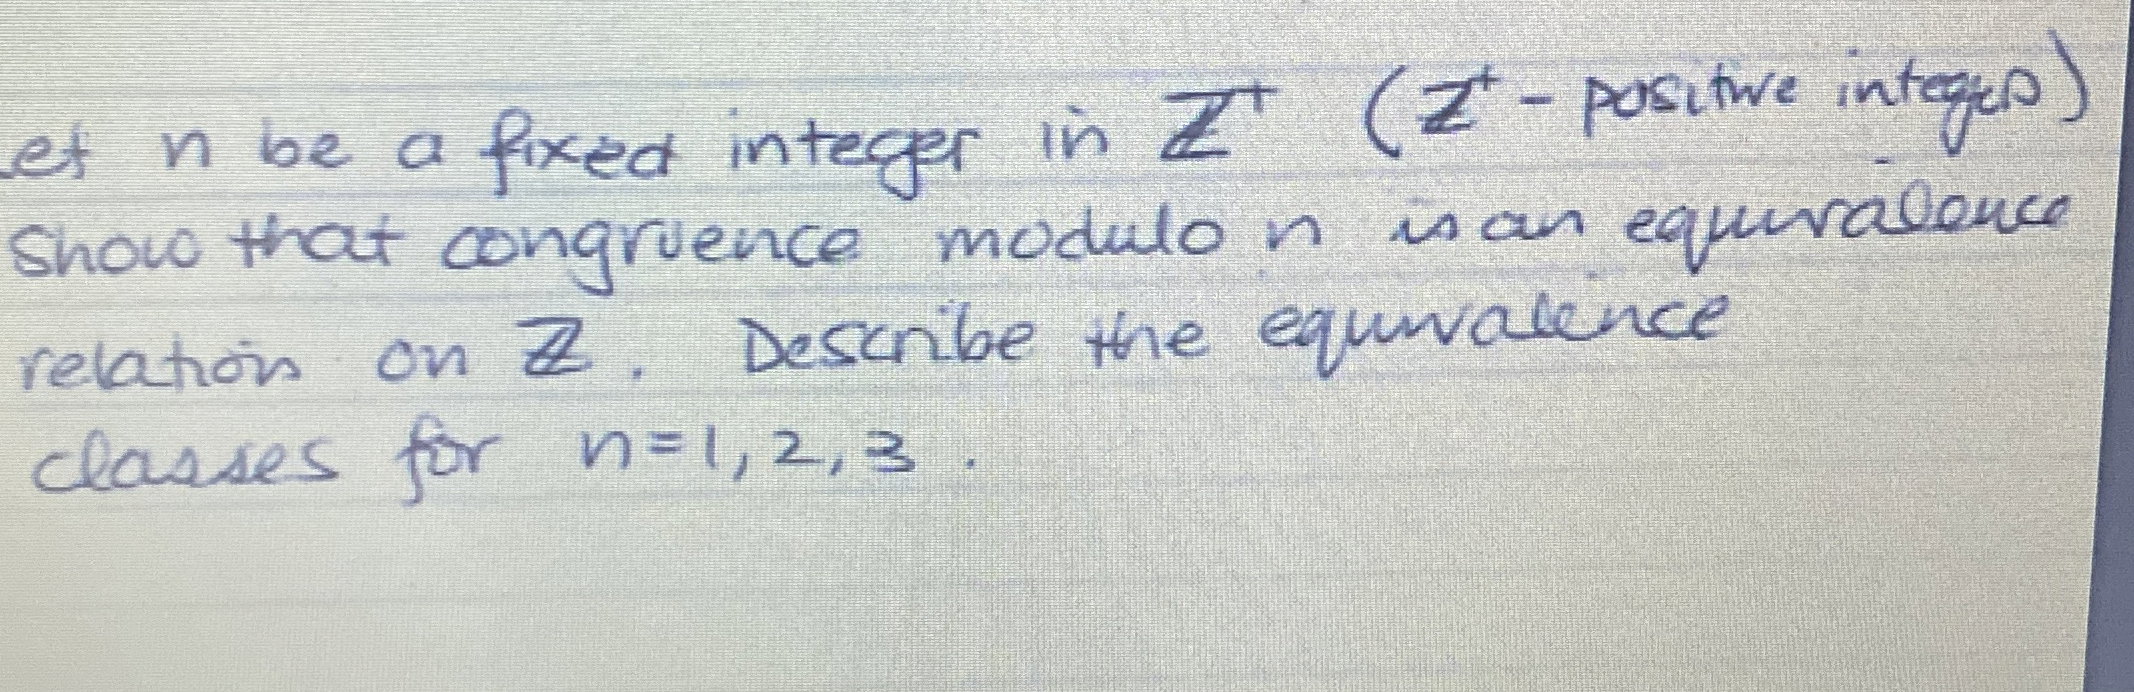 et n be a fixed integer in ℤ⁺ (ℤ⁺ - positive integers)
Show that congruence modulo n is an equivalence
relation on ℤ. Describe the equivalence
classes for n=1, 2, 3.